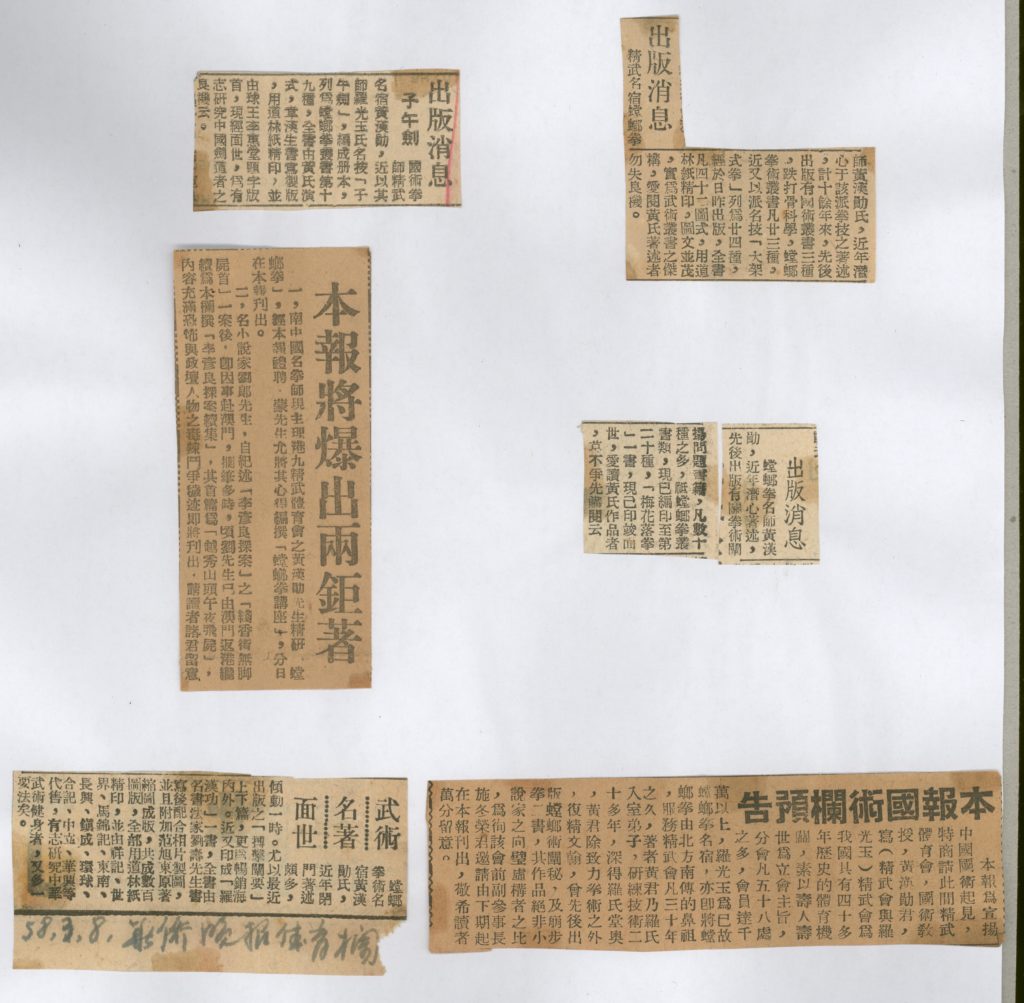 出版消息
子午劍
國術拳
師精武
名宿黃漢勛，近以其
師羅光玉氏名授「子
午劍」，編成册本，
列爲螳螂拳叢書第十
九種，全書由黃氏演
式，章漢生書寫製版
，用道林紙精印，並
由球王李惠堂題字版
首，現經面世，爲有
志研究中國劍道者之
良　云。
出版消息
精武名宿螳螂拳
師黃漢勛氏，近年潛
心于該派拳技之著述
，計十餘年來，先後
出版有國術叢書三種
，跌打骨科學，螳螂
拳術叢書凡廿三種，
近又以派名技「大架
式拳」列爲廿四種，
經於日昨出版，全書
凡四十二圖式，用道
林紙精印，圖文並茂
，實爲武術叢書之傑
構，愛閱黃氏著述者
勿失良機。
本報將爆出兩鉅著
一，南中國名拳師現主理港九精武體育會之黃漢勛先生精研「螳
螂拳」，經本報禮聘，蒙先生允將其心得編撰「螳螂拳講座」，分日
在本報刊出。
二，名小說家劉郎先生，自紀述「李彥良探案」之「綫香術無脚
屍首」一案後，卽因事赴澳門，擱筆多時，頃劉先生已由澳門返港繼
續爲本欄撰「李彥良探案續集」，其首篇爲「越秀山頭午夜飛屍」，
內容充滿恐怖與政壇人物之毒辣鬥爭穢迹卽將刊出，請讀者諸君留意
出版消息
螳螂拳名師黃漢
勛，近年潛心著述，
先後出版有關拳術關
揚問題書籍，凡數十
種之多，祗螳螂拳叢
書類，現已編印至第
二十種，「梅花落拳
」一書，現己印竣面
世，愛讀黃氏作品者
，莫不爭先購閱云
武術
名著
面世
螳螂
拳術名
宿黃漢
勛氏，
近年閉
門著述
頗多，
傾動一時。尤以最近
出版之「搏擊關要」
上下篇，更風暢銷海
內外。近又印成「羅
漢功」一書，全書由
名書法家劉壽先生書
寫後配合相片製圖，
並且附加范旭東原著
縮圖成版，共成數百
圖版，全部用道林紙
精印，並由祥記、世
界、馬錦記、東南、
長興、鎭成、環球、
合記、中立、華興等
代售，有志研究中華
武術健身者，又多一
要法矣。
58.3.8. 華僑晚報体育欄
本報國術欄預告
本報爲宣揚
中國國術起見，
特商請精武
體育會，國術敎
授，黃漢勛君，
寫（精武會與羅
光玉）精武會爲
我國具有四十多
年歷史的體育機
關，素以壽人壽
世爲立會主旨，
分會凡五十八處
之多，會員達千
萬以上，羅光玉爲已故
螳螂拳名宿，亦卽將螳
螂拳由北方南傳的鼻祖
，服務精武會凡三十年
之久，著者黃君乃羅氏
入室弟子，研練技術二
十多年，深得羅氏堂奧
，黃君除致力拳術之外
，復精文翰，曾先後出
版螳螂拳術闡秘，及崩步
拳二書，其作品絕非小
說家之向壁虛構者之比
，爲徇該會前副參事長
施冬榮君邀請由下期起
在本報刊出，敬希讀者
萬分留意。